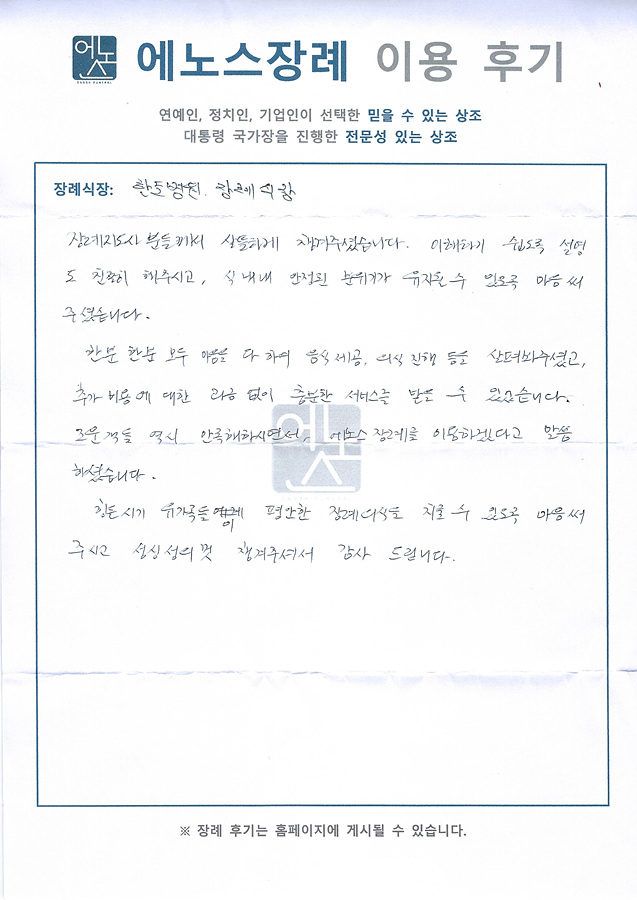 에노스
에노스장례 이용 후기
연예인, 정치인, 기업인이 선택한 믿을 수 있는 상조
대통령 국가장을 진행한 전문성 있는 상조
장례식장: 한도병원. 장례식장
장례지도사 분들께서 살뜰하게 챙겨주셨습니다. 이해하기 쉽도록 설명
도 친절히 해주시고, 식 내내 안정된 분위기가 유지될 수 있도록 마음 써
주셨습니다.
한분 한분 모두 마음을 다 하여 음식 제공, 의식 진행 등을 살펴봐주셨고,
추가 비용에 대한 과금 없이 충분한 서비스를 받을 수 있었습니다.
조문객들 역시 만족해하시면서, 에노스 장례를 이용하겠다고 말씀
하셨습니다.
힘든시기 유가족들이 편안한 장례의식을 치를 수 있도록 마음 써
주시고 성심성의껏 챙겨주셔서 감사 드립니다.
에노스
※ 장례 후기는 홈페이지에 게시될 수 있습니다.